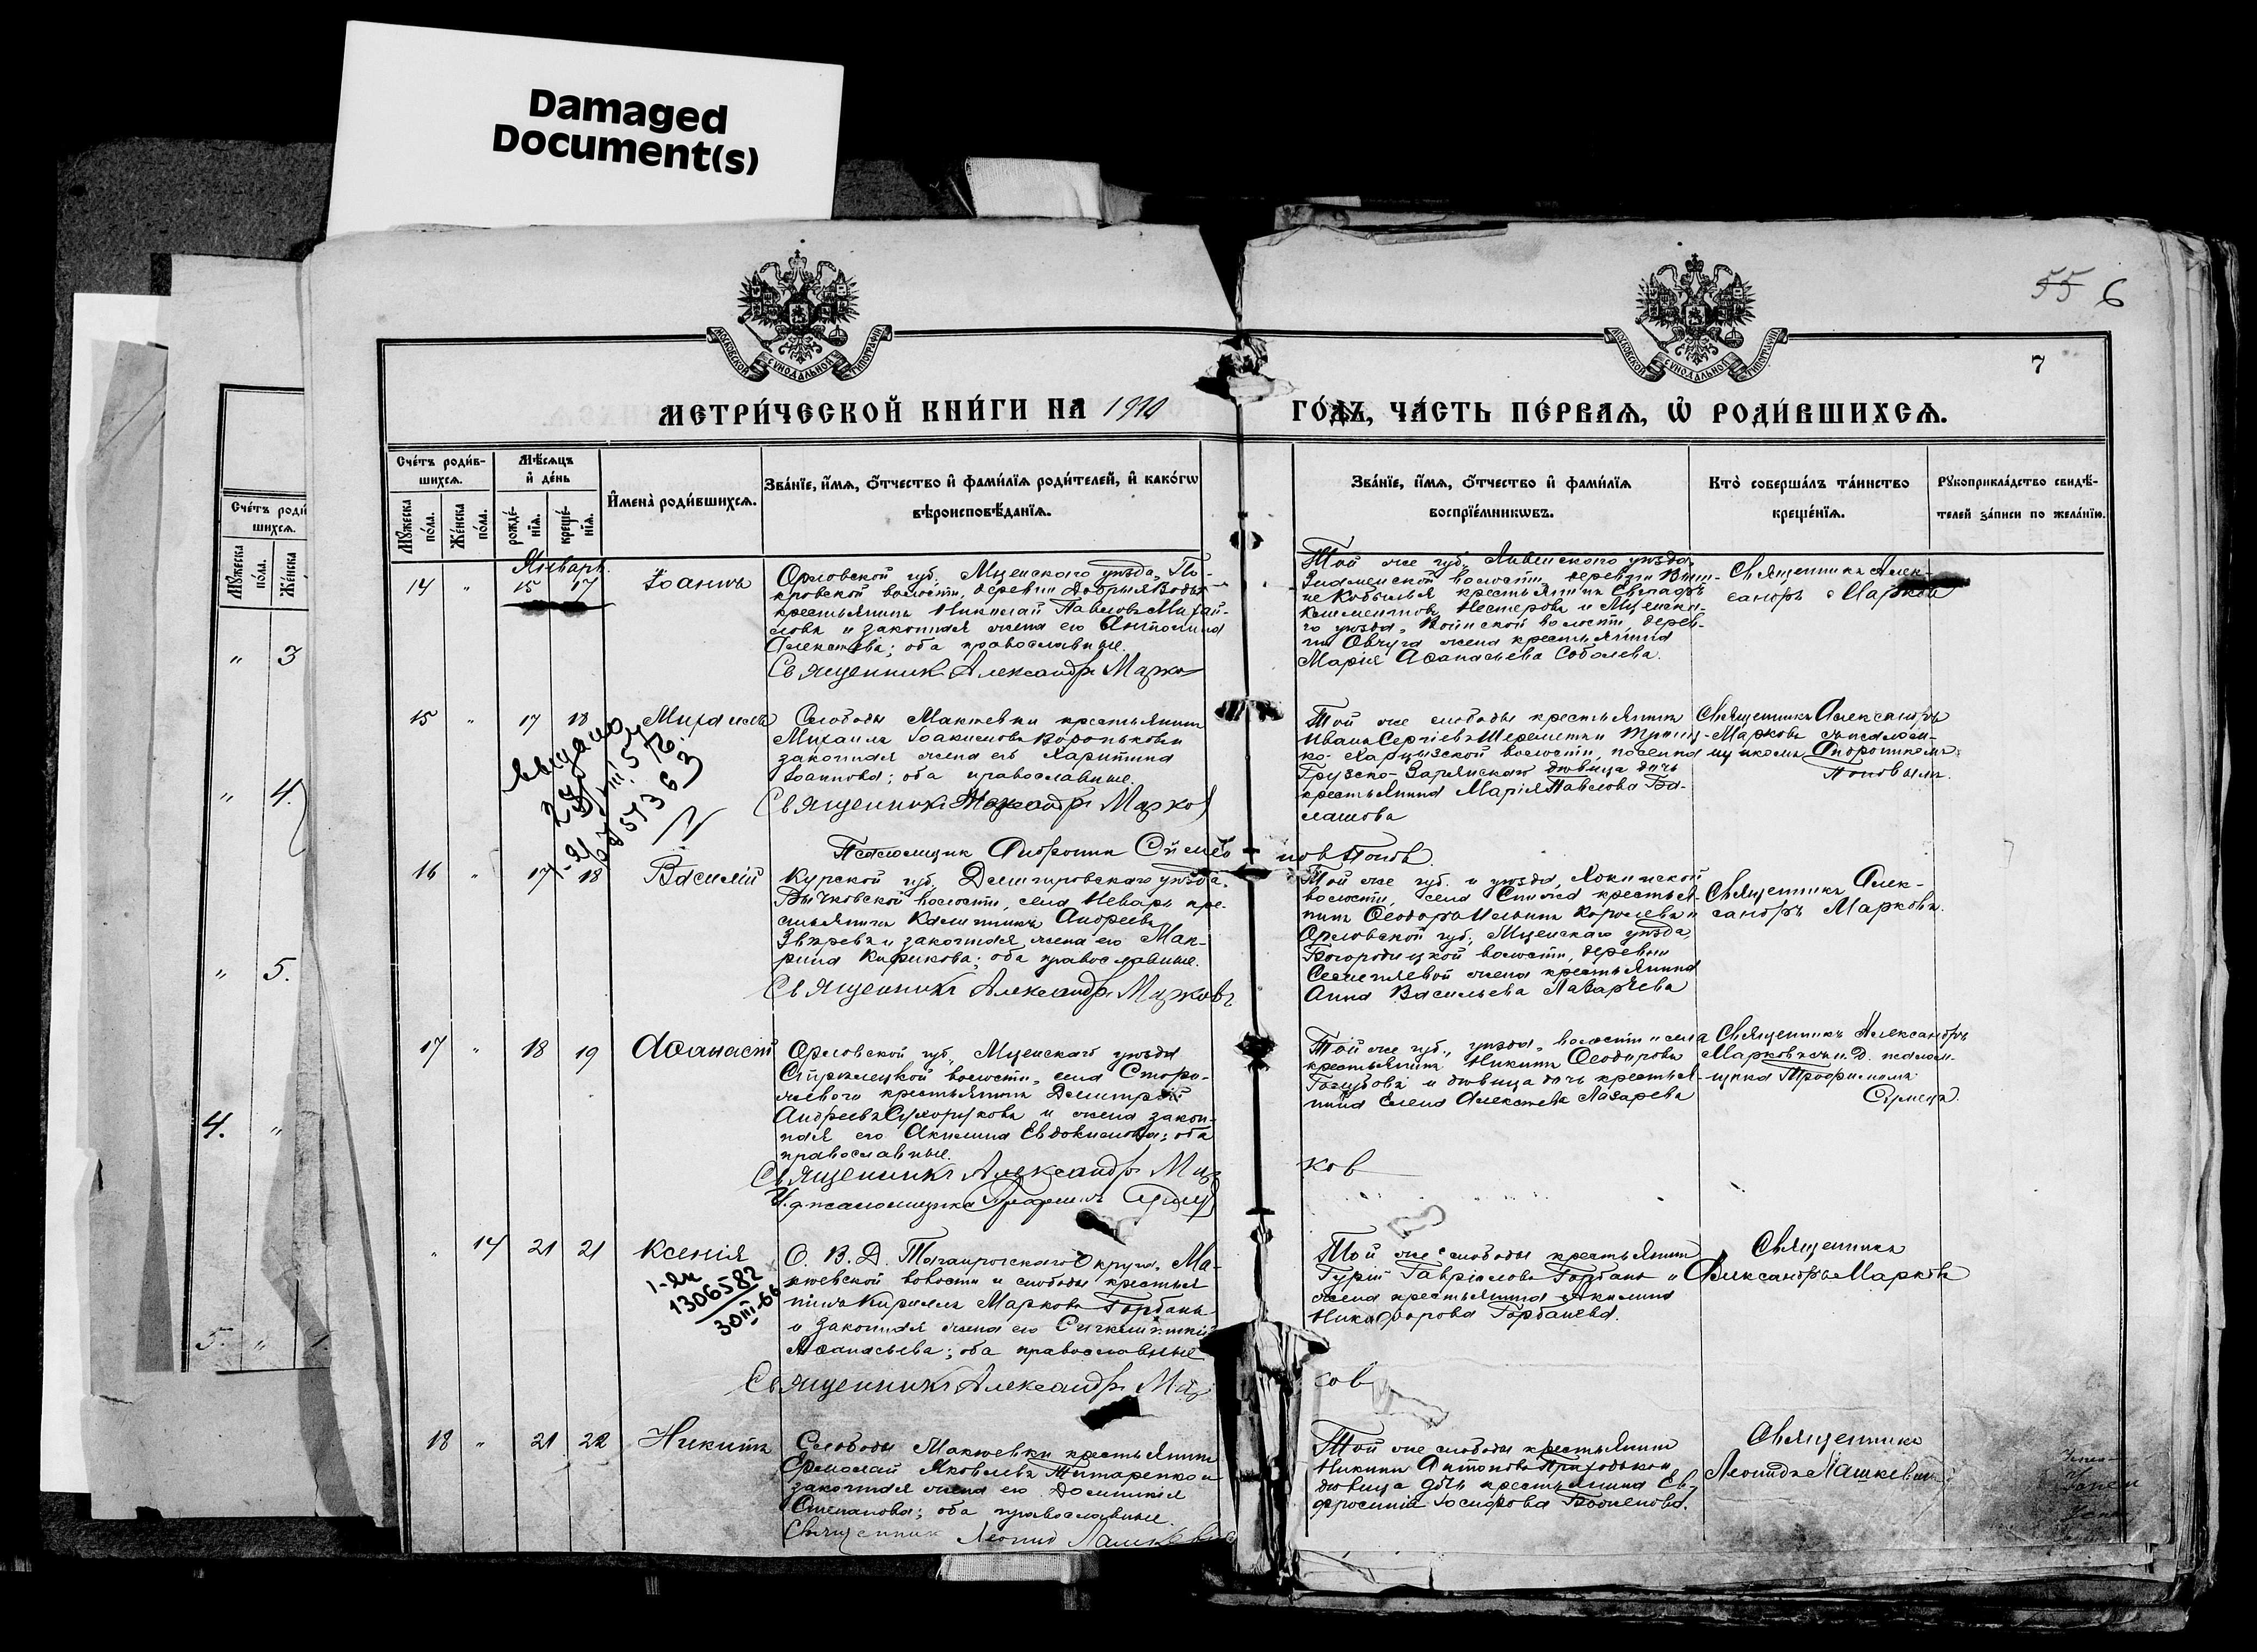 Damaged
Document(s)
55 6
7
МОСКОВСКОЙ СѴНОДАЛЬНОЙ ТИПОГРАФІИ
МОСКОВСКОЙ СѴНОДАЛЬНОЙ ТИПОГРАФІИ
МЕТРИ́ЧЕСКОЙ КНИ́ГИ НА 1910 ГО́ДЪ, ЧА́СТЬ ПЕ́РВАѦ, Ѡ҆ РОДИ́ВШИХСѦ.
Счётъ роди́в-
шихсѧ.
Мꙋжеска по́ла.
Же́нска по́ла.
Мѣ́сѧцъ
и҆ де́нь
рожде́-
нїѧ.
креще́-
нїѧ.
И҆мена̀ роди́вшихсѧ.
Зва́нїе, и҆́мѧ, ѻ҆́тчество и҆ фами́лїѧ роди́телей, и҆ како́гѡ
вѣроисповѣ́данїѧ.
Зва́нїе, и҆́мѧ, ѻ҆́тчество и҆ фами́лїѧ
воспрїе́мникѡвъ.
Кто̀ соверша́лъ та́инство
креще́нїѧ.
Рꙋкоприкла́дство свидѣ́-
телей за́писи по жела́нїю.
Январь.
14 " 15 17 Іоаннъ
Орловской губ., Мценскаго уѣзда, По-
кровской волости, деревни Добрыя Воды
крестьянинъ Николай Павловъ Михай-
ловъ и законная жена его Антонина
Алексѣева; оба православные.
Священникъ Александръ Марко
Той же губ., Ливенскаго уѣзда,
Знаменской волости, деревни
Кобылья крестьянинъ Евграфъ
Климентовъ Нестеровъ и Мценска-
го уѣзда, Воинской волости, дерев-
ни Овчуга жена крестьянина
Марія Аѳанасьева Соболева.
Священникъ Алек-
сандръ Марковъ
15 " 17 18 Михаилъ
выдано
Слободы Макѣевки крестьянинъ
Михаилъ Іоакимовъ Воронько и
законная жена его Харитина
Іоаннова; оба православные.
Священникъ Александръ Марко
Псаломщикъ Андроникъ Симео новъ Поповъ.
Той же слободы крестьянинъ
Иванъ Сергіевъ Шереметъ и Троиц-
ко-Харцызской волости, поселка
Грузско-Зарянскаго дѣвица дочь
крестьянина Марія Павлова Ба-
лашова
Священникъ Александръ
Марковъ съ псалом-
щикомъ Андроникомъ
Поповымъ.
16 " 17 18 Василій
Курской губ., Дмитріевскаго уѣзда,
Бычковской волости, села Неварь кре-
стьянинъ Калинникъ Андреевъ
Звѣревъ и законная жена его Мак-
рина Кирикова; оба православные.
Священникъ Александръ Марковъ
Той же губ. и уѣзда,
волости, села крестья-
нинъ Ѳеодоръ Ильинъ Королевъ и
Орловской губ., Мценскаго уѣзда,
Богородицкой волости, деревни
жена крестьянина
Анна Васильева Лазарева
Священникъ Алек-
сандръ Марковъ.
17 " 18 19 Аѳанасій
Орловской губ., Мценскаго уѣзда
Стрѣлецкой волости, села Сторо-
жевого крестьянинъ Димитрій
Андреевъ Сухоруковъ и жена закон-
ная его Акилина Евдокимова; оба
православные.
Священникъ Александръ Мар ков
И. д. псаломщика Трофимъ
Той же губ., уѣзда, волости и села
крестьянинъ Никита Ѳеодоровъ
Голубовъ и дѣвица дочь крестья-
нина Елена Алексѣева Лазарева
Священникъ Александръ
Марковъ съ и. д. псалом-
щика Трофимомъ
14 21 21 Ксенія
1306582
30III-66
О. В. Д. Таганрогскаго Округа, Ма-
кѣевской волости и слободы крестья-
нинъ Кириллъ Марковъ Горбань
и законная жена его Синклитикія
Аѳанасьева; оба православные
Священникъ Александръ Мар ков
Той же слободы крестьянинъ
Гурій Гавріиловъ Горбань и
жена крестьянина Акилина
Никифорова Горбанева.
Священникъ
Александръ Марковъ
18 " 21 22 Никита
Слободы Макѣевки крестьянинъ
Ермолай Яковлевъ Титаренко и
законная жена его Домникія
Степанова; оба православные.
Священник Леонид Лашкевич
Той же слободы крестьянинъ
Никита Антоновъ Приходько и
дѣвица дочь крестьянина Ев-
фросинія Іосифова
Священникъ
Леонидъ Лашкевичъ
Счётъ роди
шихсѧ.
Мꙋжеска по́ла.
Же́нска
" 3
" 4.
" 5.
4. "
5. " 1.